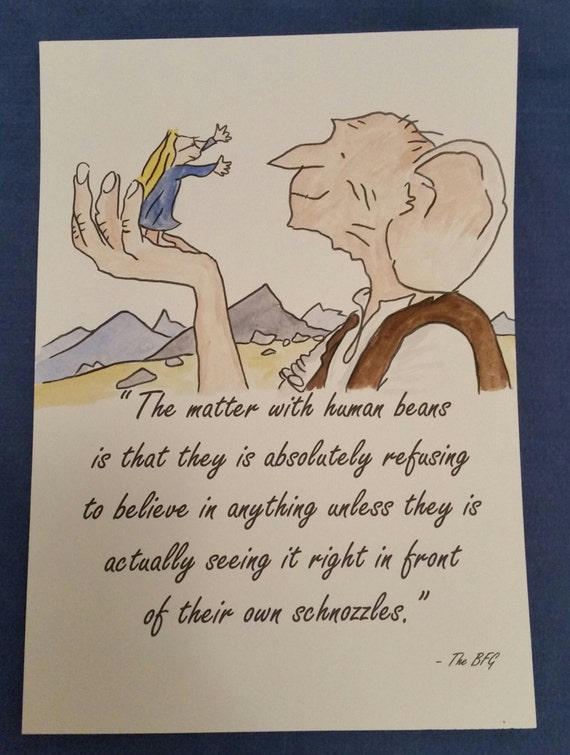 "The matter with human beans
is that they is absolutely refusing
to believe in anything unless they is
actually seeing it right in front
of their own schnozzles."
- The BFG